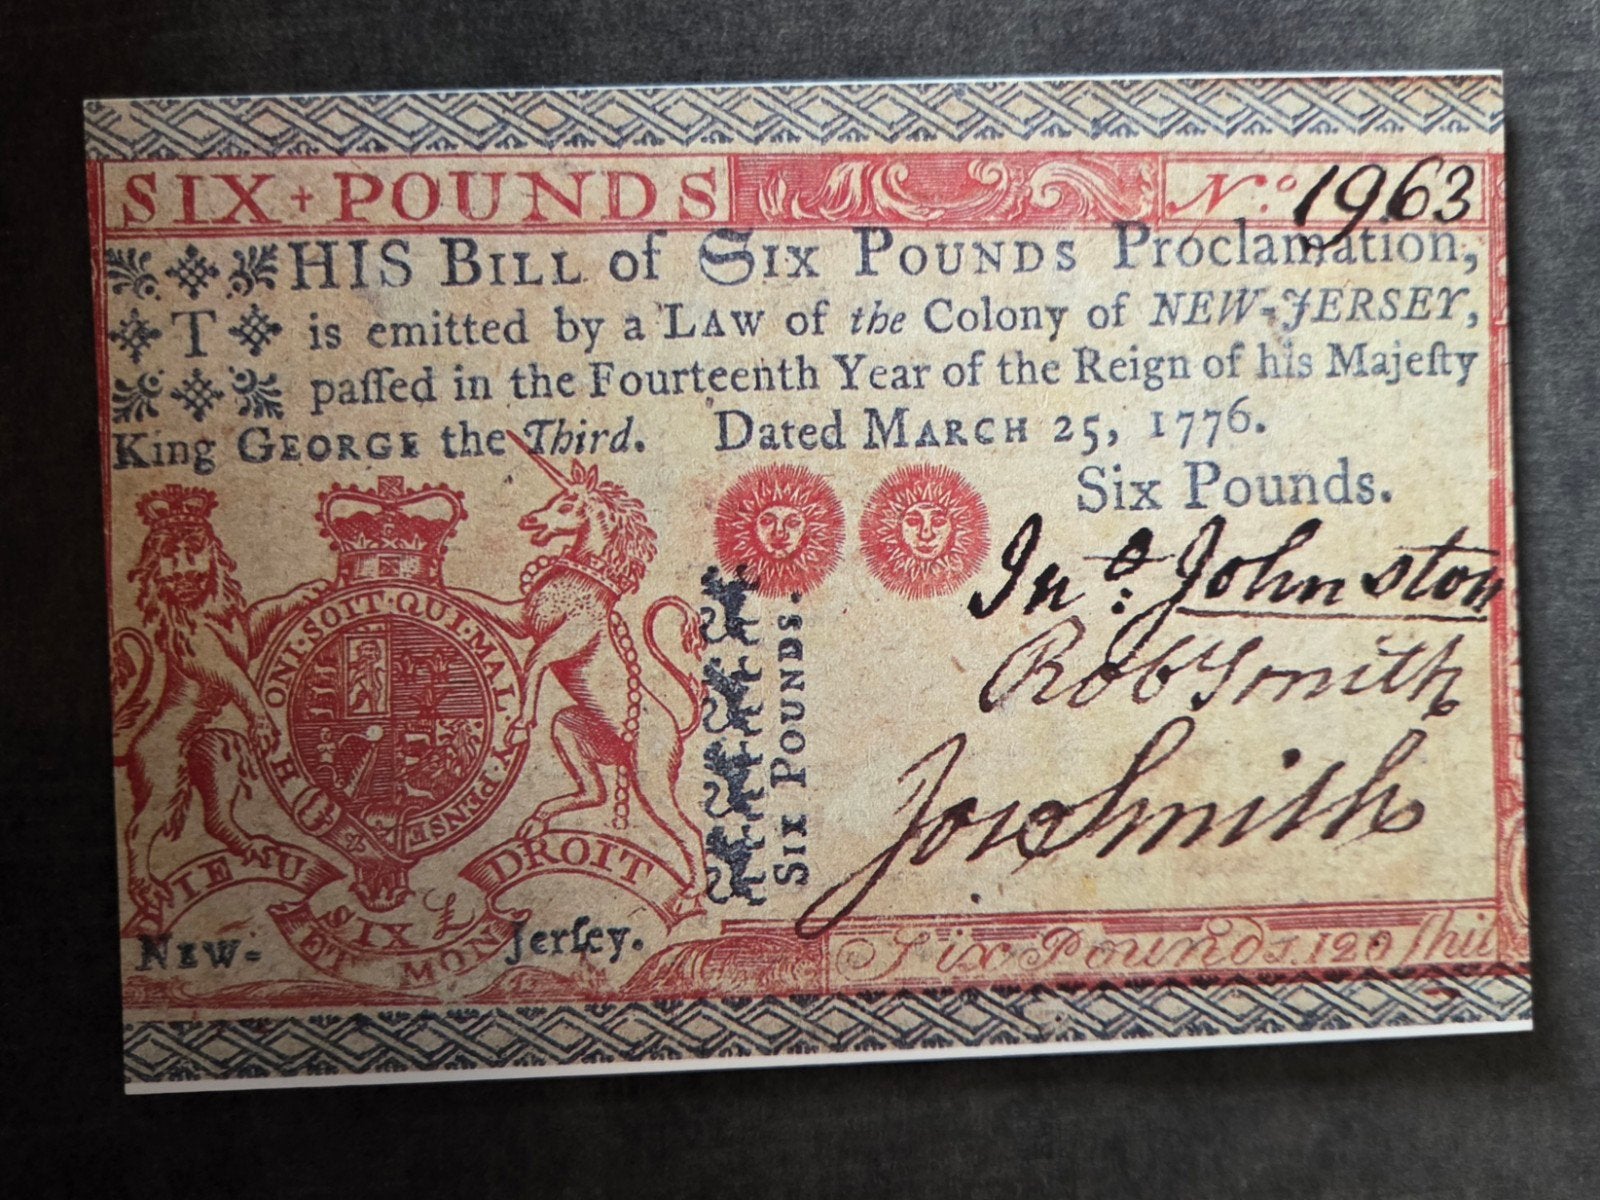 SIX + POUNDS
No: 1963
THIS BILL of SIX POUNDS Proclamation,
is emitted by a LAW of the Colony of NEW-JERSEY,
paſſed in the Fourteenth Year of the Reign of his Majeſty
King GEORGE the Third. Dated MARCH 25, 1776.
Six Pounds.
Jno: Johnston
Rob Smith
Jos Smith
HONI·SOIT·QUI·MAL·Y·PENSE
SIX POUNDS.
DIEU ET MON DROIT
SIX £
NEW-Jerſey.
Six Pounds. 120 ſhil